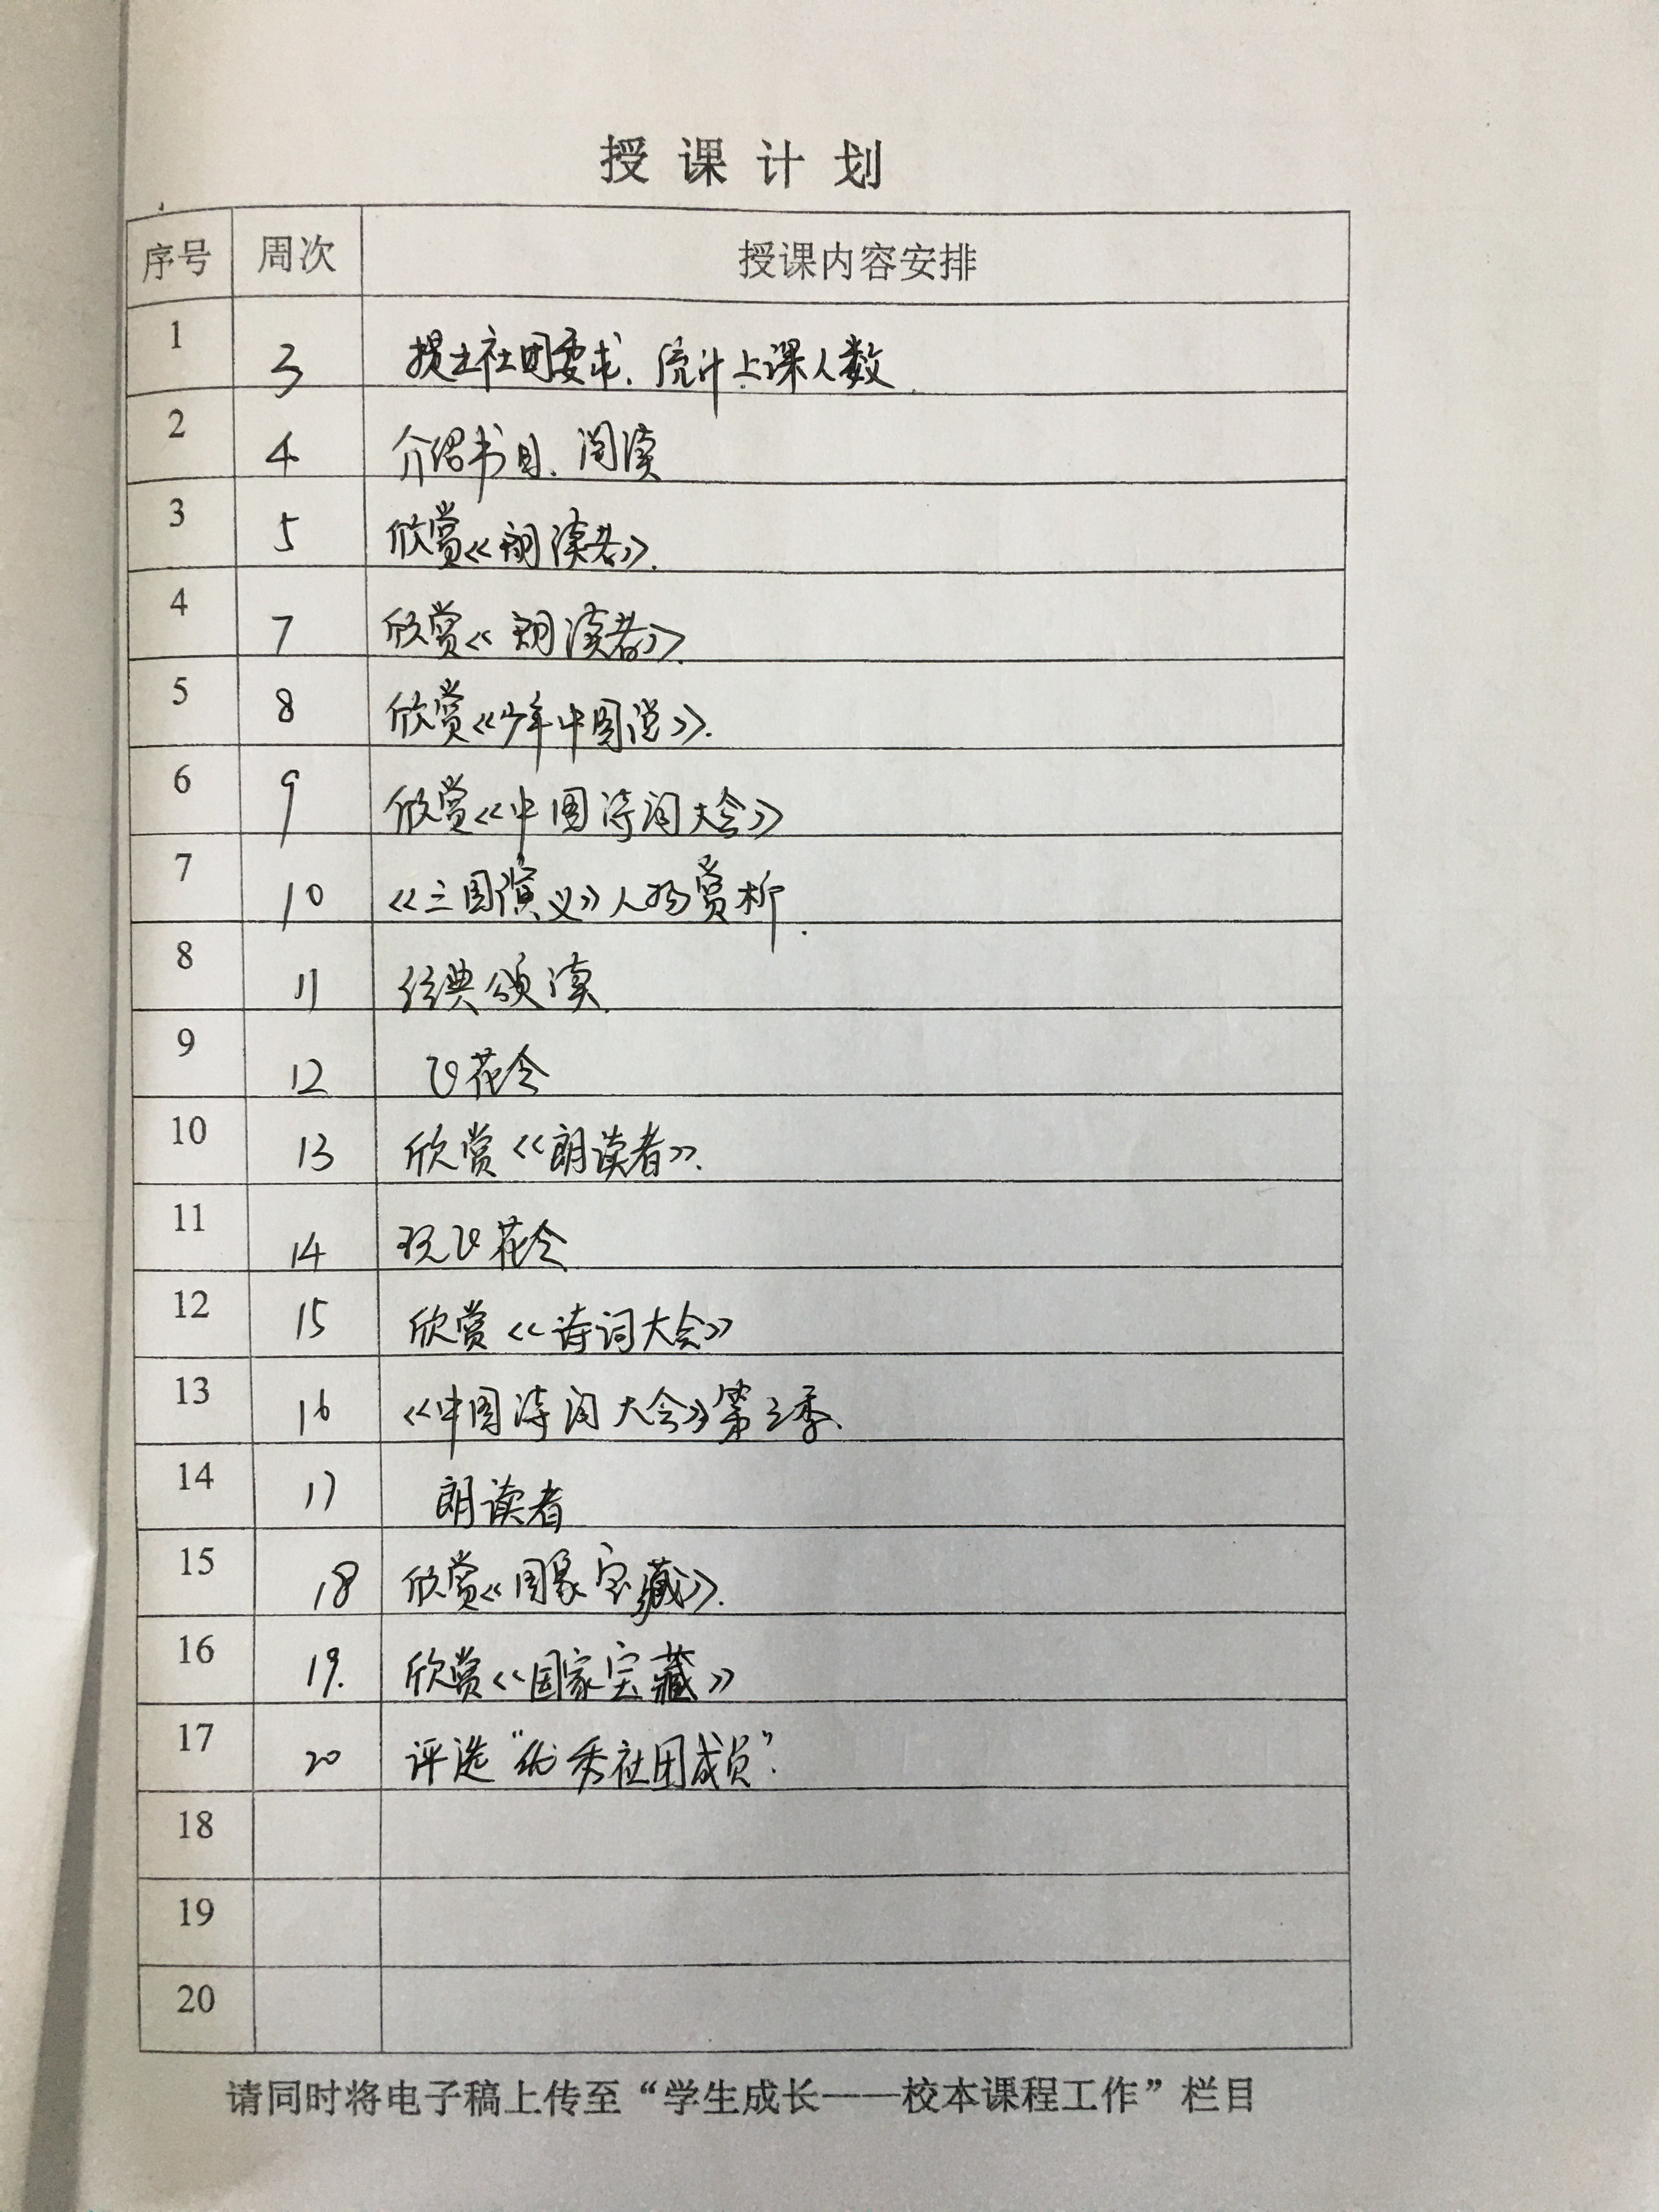 授课计划
序号 周次 授课内容安排
1 3 提出社团要求、统计上课人数
2 4 介绍书目、阅读
3 5 欣赏《朗读者》.
4 7 欣赏《朗读者》.
5 8 欣赏《少年中国说》.
6 9 欣赏《中国诗词大会》
7 10 《三国演义》人物赏析.
8 11 经典颂读.
9 12 飞花令
10 13 欣赏《朗读者》.
11 14 玩飞花令
12 15 欣赏《诗词大会》
13 16 《中国诗词大会》第三季.
14 17 朗读者
15 18 欣赏《国家宝藏》.
16 19. 欣赏《国家宝藏》
17 20 评选“优秀社团成员”.
18
19
20
请同时将电子稿上传至“学生成长——校本课程工作”栏目